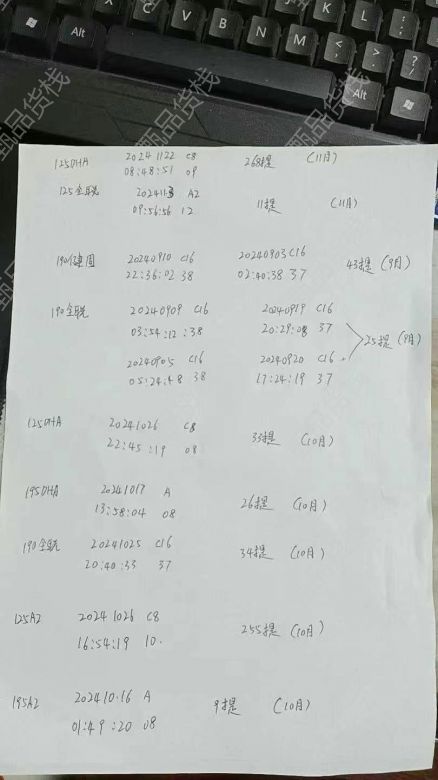 125DHA 20241122 C8 268提 (11月)
08:48:51 09
125全脱 2024113 A2 11提 (11月)
09:56:56 12
190健固 20240910 C16 20240903 C16 43提 (9月)
22:36:02 38 02:40:38 37
190全脱 20240909 C16 20240919 C16
03:54:12:38 20:29:08 37
25提 (9月)
20240905 C16 20240920 C16
05:24:48 38 17:24:19 37
125DHA 20241026 C8 33提 (10月)
22:45:19 08
195DHA 20241017 A 26提 (10月)
13:58:04 08
190全脱 20241025 C16 34提 (10月)
20:40:33 37
125A2 20241026 C8 255提 (10月)
16:54:19 10.
195A2 202410.16 A 9提 (10月)
01:49:20 08
甄品货栈